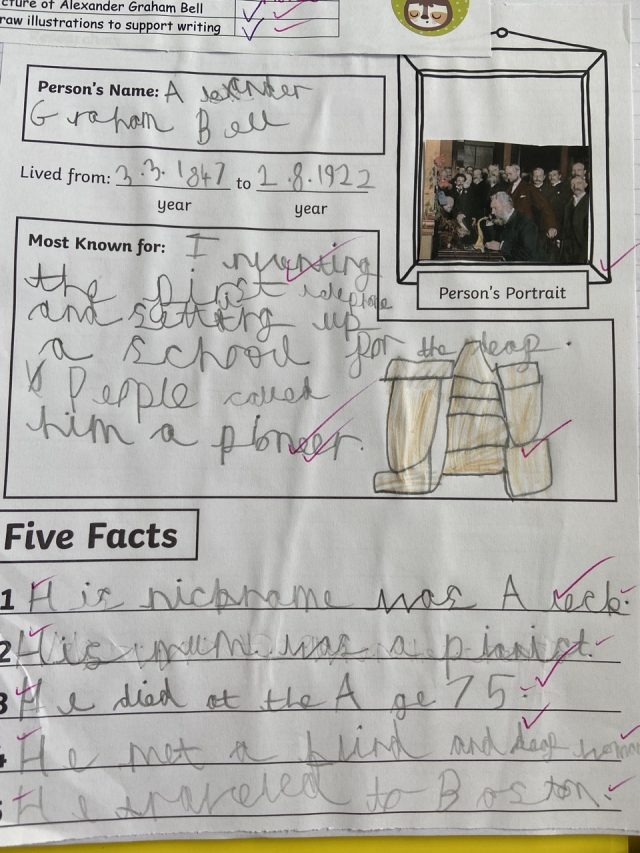 cture of Alexander Graham Bell
raw illustrations to support writing
Person's Name: Alexander
Graham Bell
Lived from: 3.3.1847 to 2.8.1922
year year
Most Known for: Inventing
the first telephone
and setting up
a school for the deaf.
People called
him a pioneer.
Person's Portrait
Five Facts
1 His nickname was Aleck.
2 His mum was a pianist.
3 He died at the Age 75.
4 He met a blind and deaf woman
5 He traveled to Boston.